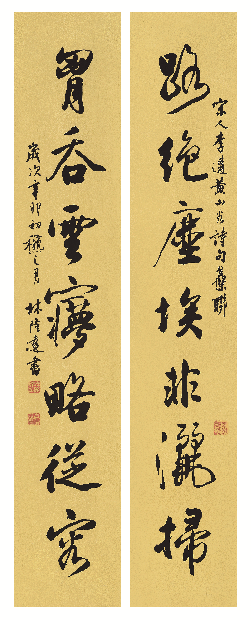 宋人李黃山谷詩句集聯
路絕塵埃非灑掃
胷吞雲夢略從容
歲次辛卯初穐之月 林隆達書